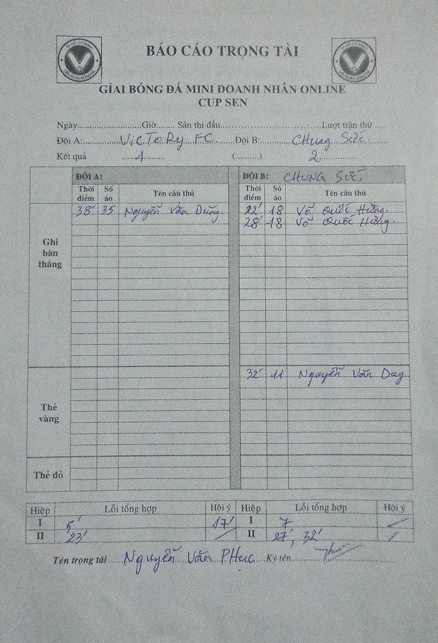 BÁO CÁO TRỌNG TÀI
GIẢI BÓNG ĐÁ MINI DOANH NHÂN ONLINE
CUP SEN
Ngày.............Giờ........ Sân thi đấu.......................Lượt trận thứ ....
Đội A: VICTORY FC Đội B: Chung Sức.
Kết quả 1 (.........) 2
ĐỘI A: ĐỘI B: CHUNG SỨC
Thời điểm Số áo Tên cầu thủ Thời điểm Số áo Tên cầu thủ
Ghi bàn thắng
38' 35 Nguyễn Văn Dũng. 22' 18 Võ Quốc Hưng.
28' 18 Võ Quốc Hưng.
Thẻ vàng
32' 11 Nguyễn Văn Duy.
Thẻ đỏ
Hiệp Lỗi tổng hợp Hội ý Hiệp Lỗi tổng hợp Hội ý
I 5' 17' I 7
II 23' II 27', 32'
Tên trọng tài Nguyễn Văn Phục Ký tên